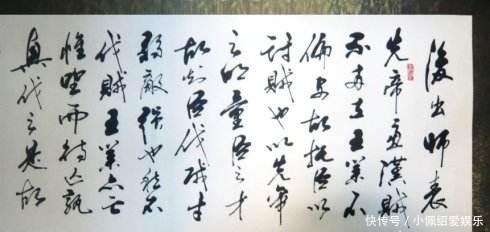 後出师表
先帝慮漢賊
不兩立王業不
偏安故托臣以
討賊也以先帝
之明量臣之才
故知臣伐賊才
弱敵強也然不
伐賊王業亦亡
惟坐而待亡孰
與伐之是故
快传号 / 小佩绍爱娱乐